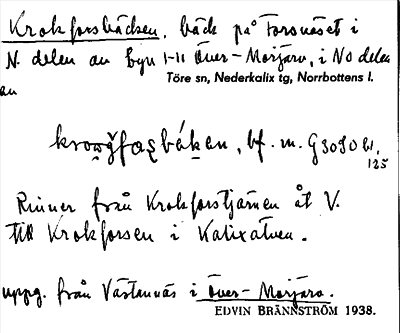 Krokforsbäcken, bäck på Forsnäset i
N. delen av byn 1-11 Över-Morjärv, i NO delen
av Töre sn, Nederkalix tg, Norrbottens l.
bf. m.
125
Rinner från Krokforstjärnen åt V.
till Krokforsen i Kalixälven.
uppg. från Västannäs i Över-Morjärv.
EDVIN BRÄNNSTRÖM 1938.